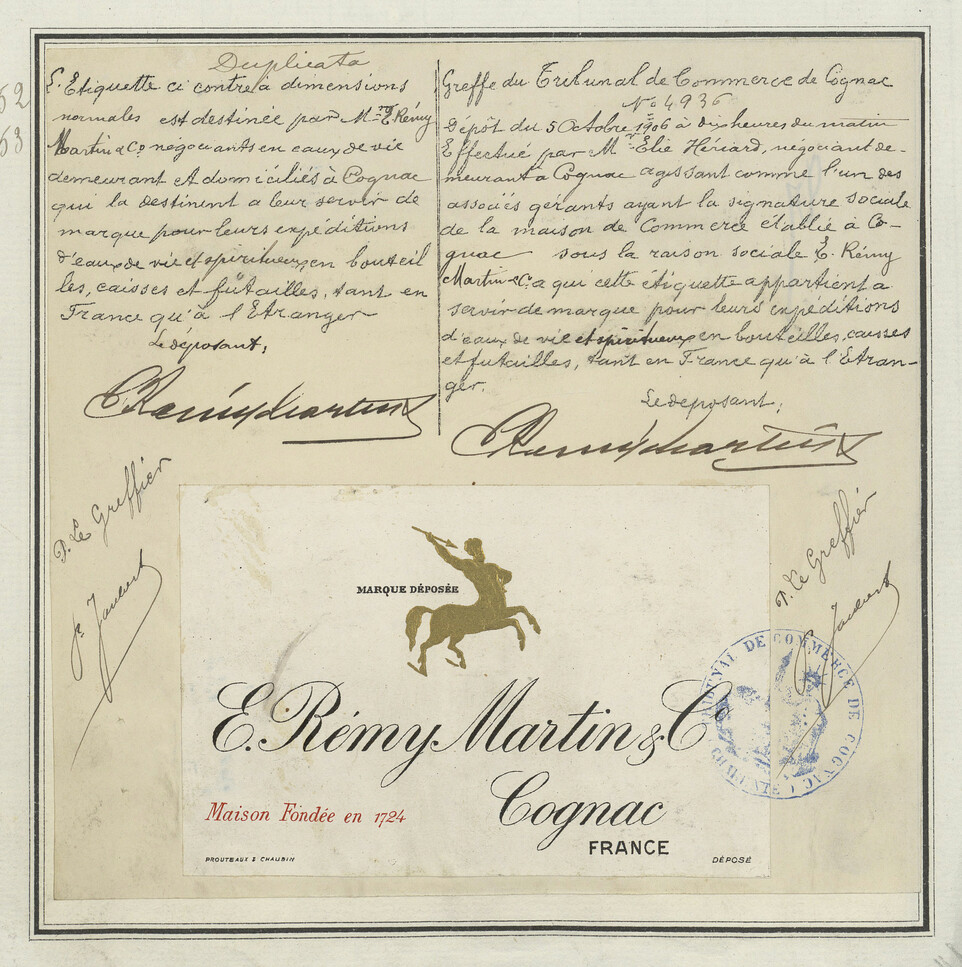 Duplicata
L'Etiquette ci contre à dimensions
normales est destinée par M.rs E. Rémy
Martin & Co. negociants en eaux de vie
demeurant et domiciliés à Cognac
qui la destinent a leur servir de
marque pour leurs expéditions
d'eaux de vie et spiritueux, en bouteil
les, caisses et fûtailles, tant en
France qu'à l'Etranger
Le déposant,
E Remy Martin & C
Greffe du Tribunal de Commerce de Cognac
No 4936
Dépôt du 5 Octobre 1906 à dix heures du matin
Effectué par M Elie Heriard, negociant de-
meurant a Cognac agissant comme l'un des
associés gerants ayant la signature sociale
de la maison de Commerce établie à Co-
gnac sous la raison sociale E. Rémy
Martin & C. a qui cette étiquette appartient a
servir de marque pour leurs expéditions
d'eaux de vie et spiritueux en bouteilles, caisses
et futailles, tant en France qu'à l'Etran-
ger.
Le deposant,
E Remy Martin & C
P. Le Greffier
P. Le Greffier
MARQUE DÉPOSÉE
E. Rémy Martin & Co
Cognac
FRANCE
Maison Fondée en 1724
PROUTEAUX & CHAUBIN
DÉPOSÉ
TRIBUNAL DE COMMERCE DE COGNAC
CHARENTE